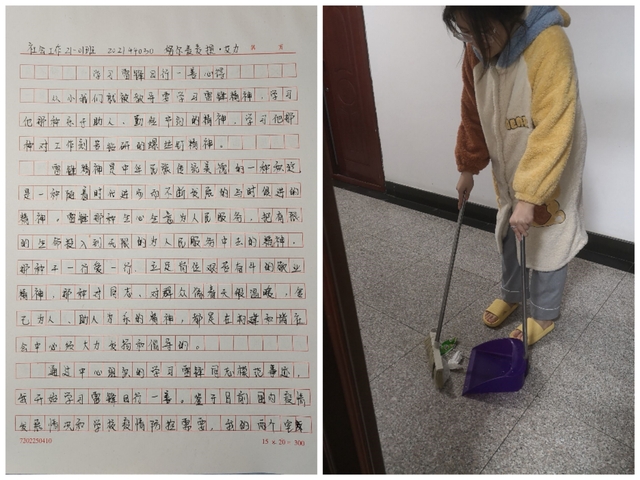 社会工作21-01班 202144030 尔 · 艾力 共 页
学习雷锋日行一善心得
从小我们就被教导要学习雷锋精神，学习
他那种乐于助人、勤俭节约的精神，学习他那
种对工作刻苦钻研的螺丝钉精神。
雷锋精神是中华民族传统美德的一种
是一种随着时代进步而不断发展的与时俱进的
精神，雷锋那种全心全意为人民服务，把有限
的生命投入到无限的为人民服务中去的精神，
那种干一行爱一行、立足岗位艰苦奋斗的敬业
精神，那种对同志、对群众像春天般温暖，舍
己为人、助人为乐的精神，都是在构建和谐社
会中必须大力发扬和倡导的。
通过中心组织的学习雷锋同志模范事迹，
我开始学习雷锋日行一善，鉴于目前国内疫情
发展情况和学校疫情防控需要，我的两个室
7202250410 15×20=300
BEAR